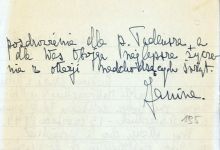 pozdrowienia dla p. Tadeusza, a
dla Was Obojga najlepsze życze-
nia z okazji nadchodzących świąt.
Janina.
195